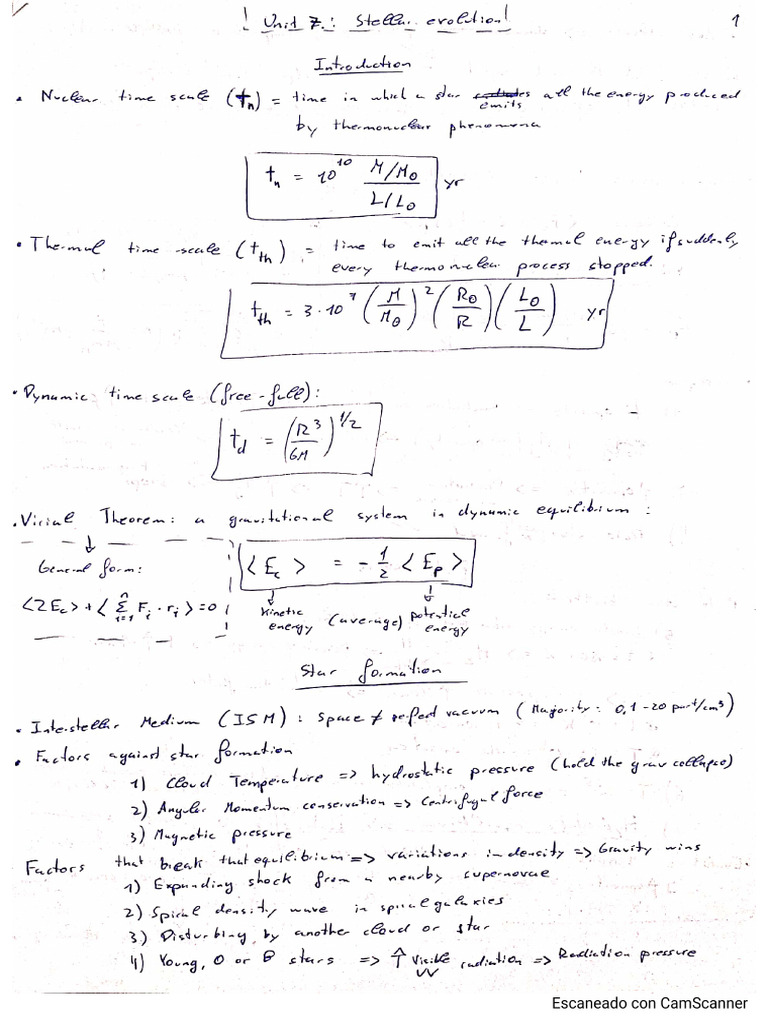 ! Unit 7.: Stellar evolution!
1
Introduction
• Nuclear time scale (tn) = time in which a star emits all the energy produced
by thermonuclear phenomena
tn = 10^10 (M/M⊙)/(L/L⊙) yr
• Thermal time-scale (t_th) = time to emit all the thermal energy if suddenly
every thermonuclear process stopped.
t_th = 3·10^7 (M/M⊙)^2 (R⊙/R)(L⊙/L) yr
• Dynamic time scale (free-fall):
t_d = (R^3/GM)^1/2
• Virial Theorem: a gravitational system in dynamic equilibrium:
General form:
<2Ec> + <Σ_{i=1}^{n} F_i · r_i> = 0
<Ec> = -1/2 <Ep>
kinetic energy (average) potential energy
Star formation
• Interstellar Medium (ISM): space ≠ perfect vacuum (Majority: 0,1-20 part/cm³)
• Factors against star formation
1) Cloud Temperature => hydrostatic pressure (hold the grav collapse)
2) Angular Momentum conservation => Centrifugal force
3) Magnetic pressure
Factors that break that equilibrium => variations in density => Gravity wins
1) Expanding shock from a nearby supernovae
2) Spiral density wave in spiral galaxies
3) Disturbing by another cloud or star
4) Young, O or B stars => ↑ Visible radiation => Radiation pressure
UV
Escaneado con CamScanner